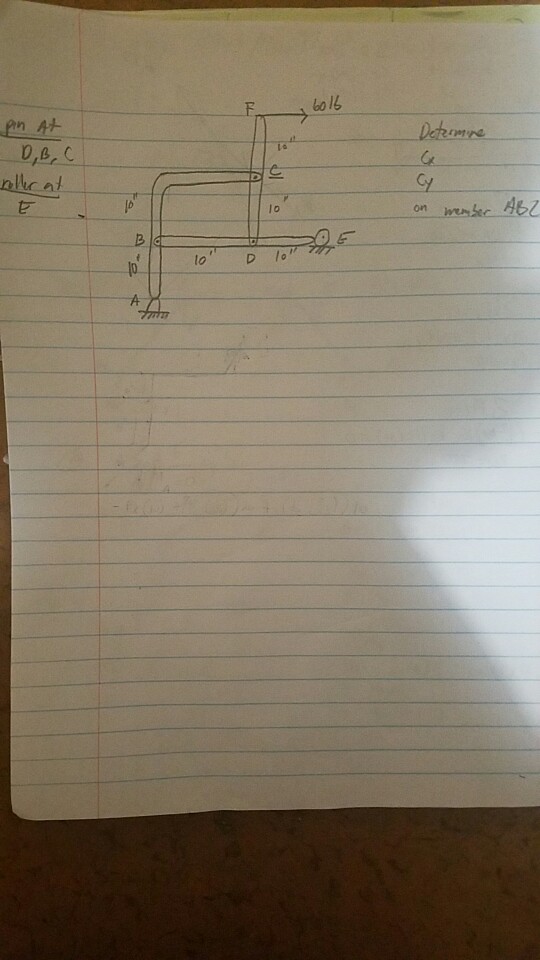 F 60 lb
pin At
D, B, C
roller at
E
10"
C
10"
10"
B
10"
D
10"
E
10"
A
Determine
Cx
Cy
on member ABC